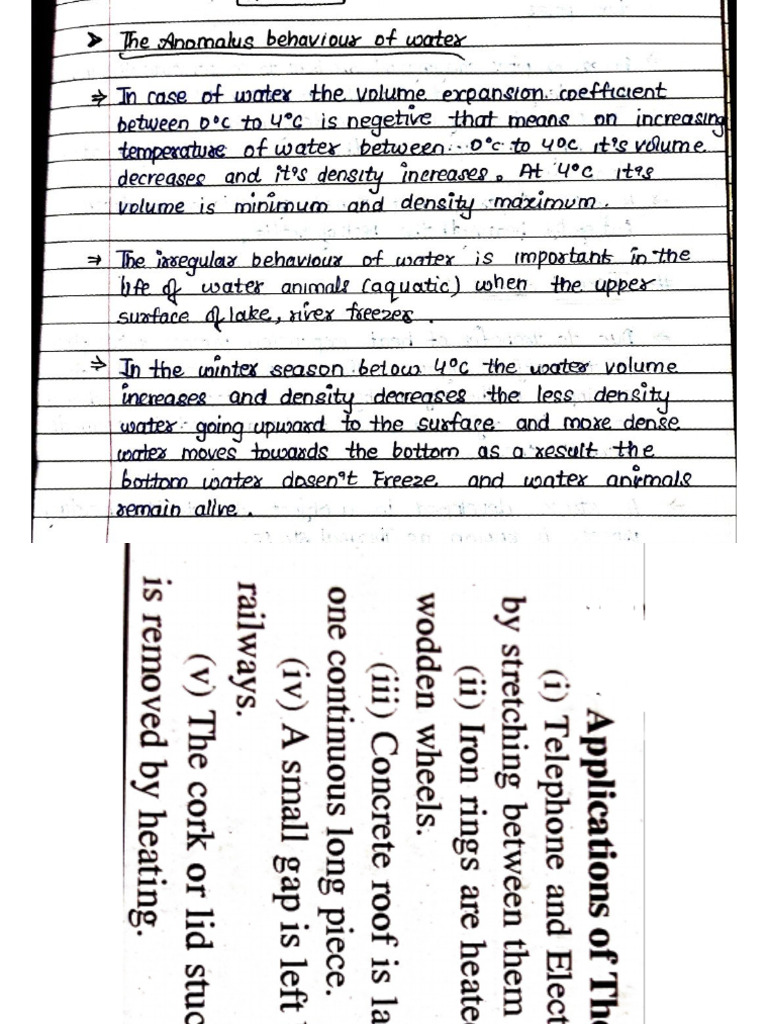 > The Anomalus behaviour of water
⇒ In case of water the volume expansion coefficient
between 0°c to 4°c is negetive that means on increasing
temperature of water between 0°c to 4°c it's volume
decreases and it's density increases. At 4°c it's
volume is minimum and density maximum.
⇒ The irregular behaviour of water is important in the
life of water animals (aquatic) when the upper
surface of lake, river freezes.
⇒ In the winter season below 4°c the water volume
increases and density decreases the less density
water going upward to the surface and more dense
water moves towards the bottom as a result the
bottom water dosen't Freeze and water animals
remain alive.
Applications of The
(i) Telephone and Elect
by stretching between them
(ii) Iron rings are heate
wodden wheels.
(iii) Concrete roof is la
one continuous long piece.
(iv) A small gap is left
railways.
(v) The cork or lid stuc
is removed by heating.